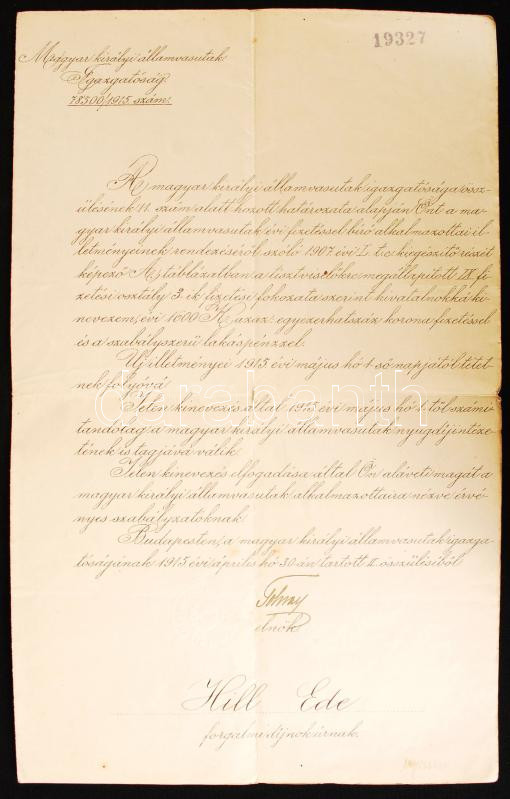 19327
Magyar királyi államvasutak
Igazgatóság.
78500/1915. szám.
A magyar királyi államvasutak igazgatósága össz-
ülésének 11. szám alatt hozott határozata alapján Önt a ma-
gyar királyi államvasutak évi fizetéssel biró alkalmazottai il-
letményeinek rendezéséről szóló 1907. évi L. t. c. kiegészitő részét
képező A) táblázatban a tisztviselőkre megállapitott IX. fi-
zetési osztály 3.-ik fizetési fokozata szerint hivatalnokká ki-
nevezem, évi 1600 K azaz: egyezerhatszáz korona fizetéssel
és a szabályszerü lakáspénzzel.
Uj illetményei 1915 évi május hó 1-ső napjától tétet-
nek folyóvá.
Jelen kinevezés által 1915 évi május hó 1-től számi-
tandólag a magyar királyi államvasutak nyugdijintéze-
tének is tagjává válik.
Jelen kinevezés elfogadása által Ön aláveti magát a
magyar királyi államvasutak alkalmazottaira nézve érvé-
nyes szabályzatoknak.
Budapesten, a magyar királyi államvasutak igazga-
tóságának 1915 évi április hó 30-án tartott II. összüléséből.
Tolnay
elnök.
Hill Ede
forgalmi dijnok úrnak.
darabanth